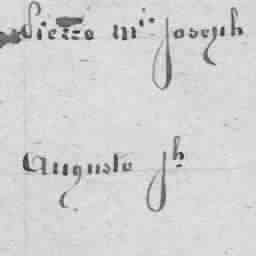 Pierre mie Joseph
Auguste jh